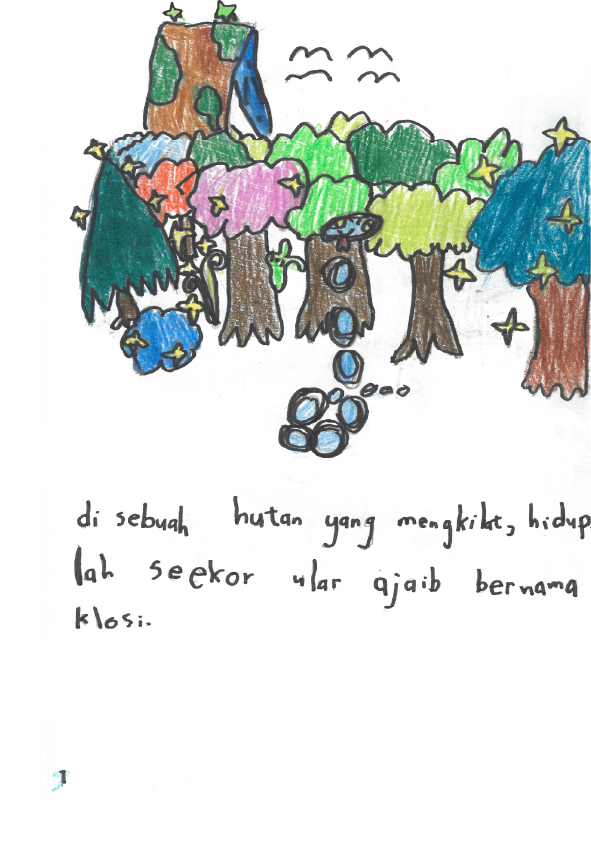 di sebuah hutan yang mengkilat, hidup
lah seekor ular ajaib bernama
klosi.
1